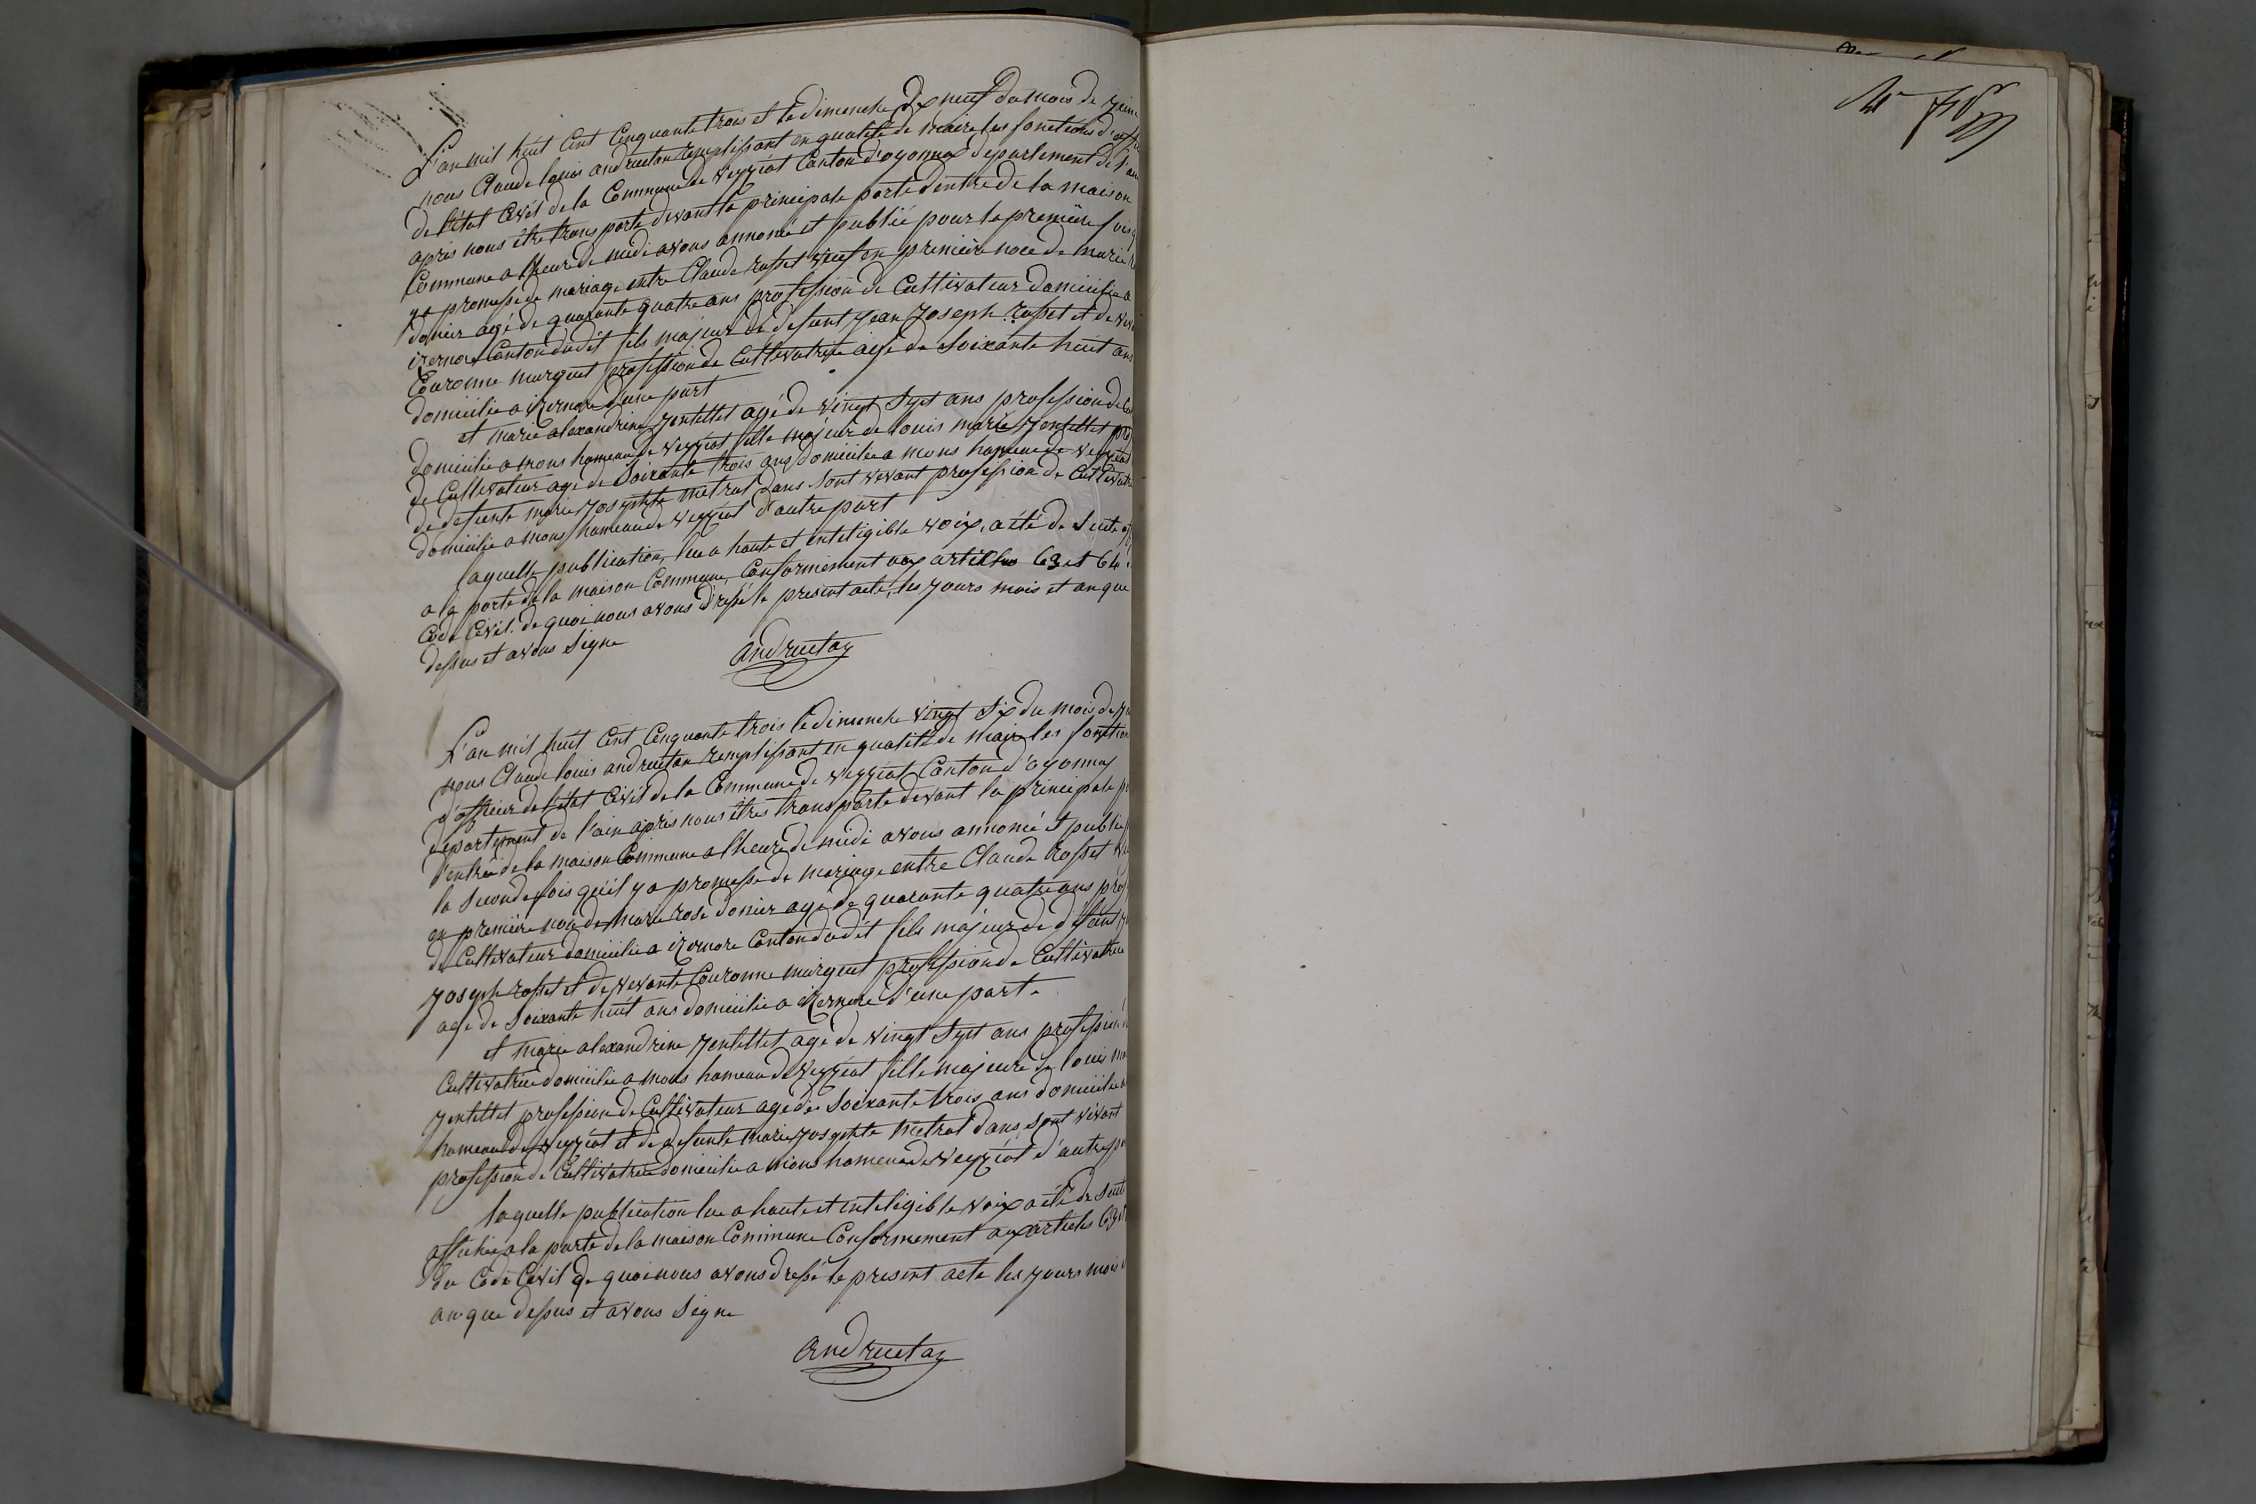 L'an mil huit Cent Cinquante trois et le dimenche Dix neuf du mois de juin
nous Claude louis andruetan remplissant en qualité de maire les fonctions d'off
de l'état Civil de la Commune de Veyziat Canton d'oyonnax departement de l'ain
après nous être transporté devant la principale porte d'entré de la maison
Commune a l'heure de midi avons annoncé et publié pour la première fois q
ya promesse de mariage entre Claude rosset veuf en première noce de marie
donier agé de quarante quatre ans profession de Cultivateur domicilié a
izernore Canton dudit fils majeur de defunt jean joseph rosset et de viv
Couronne murguet profession de Cultivatrice agé de Soixante huit ans
domicilié a izernore d'une part
et marie alexandrine jentellet agé de vingt Sept ans profession de Cul
domicilié a mons hameau de veyziat fille majeur de louis marie jentellet pro
de Cultivateur agé de Soixante trois ans domicilié a mons hameau de veyziat
de defunte marie josephte metral dans sont vivant profession de Cultivatr
domicilié a mons hameau de veyziat d'autre part
laquelle publication, lue a haute et inteligible voix, a été de Suite aff
a la porte de la maison Commune, Conformement aux articles 63 et 64
Code Civil. de quoi nous avons dressé le present acte, les jours mois et an que
dessus et avons Signe
andruetan
L'an mil huit Cent Cinquante trois le dimenche vingt Six du mois de ju
nous Claude louis andruetan remplissant en qualité de Maire les fonction
d'officier de l'état Civil de la Commune de veyziat Canton d'oyonnax
departement de l'ain après nous êtres transporté devant la principale p
d'entrée de la maison Commune a l'heure de midi avons annoncé et publié
la Seconde fois qu'il y a promesse de mariage entre Claude Rosset v
en première noce de marie rose donier agé de quarante quatre ans prof
de Cultivateur domicilié a izernore Canton dudit fils majeur de défunt j
joseph rosset et de vivante Couronne murguet profession de Cultivatrice
agé de Soixante huit ans domicilié a izernore d'une part.
et marie alexandrine jentellet agé de vingt Sept ans profession
Cultivatrice domicilié a mons hameau de veyziat fille majeure de louis ma
jentellet profession de Cultivateur agé de Soixante trois ans domicilié a
hameau de veyziat et de defunte marie josephte metral dans sont vivant
profession de Cultivatrice domicilié a mons hameau de veyziat d'autre pa
laquelle publication lue a haute et inteligible voix a été de suite
affichée a la porte de la maison Commune Conformement aux articles 63 et
du Code Civil de quoi nous avons dressé le present acte les jours mois
an que dessus et avons Signe
andruetan